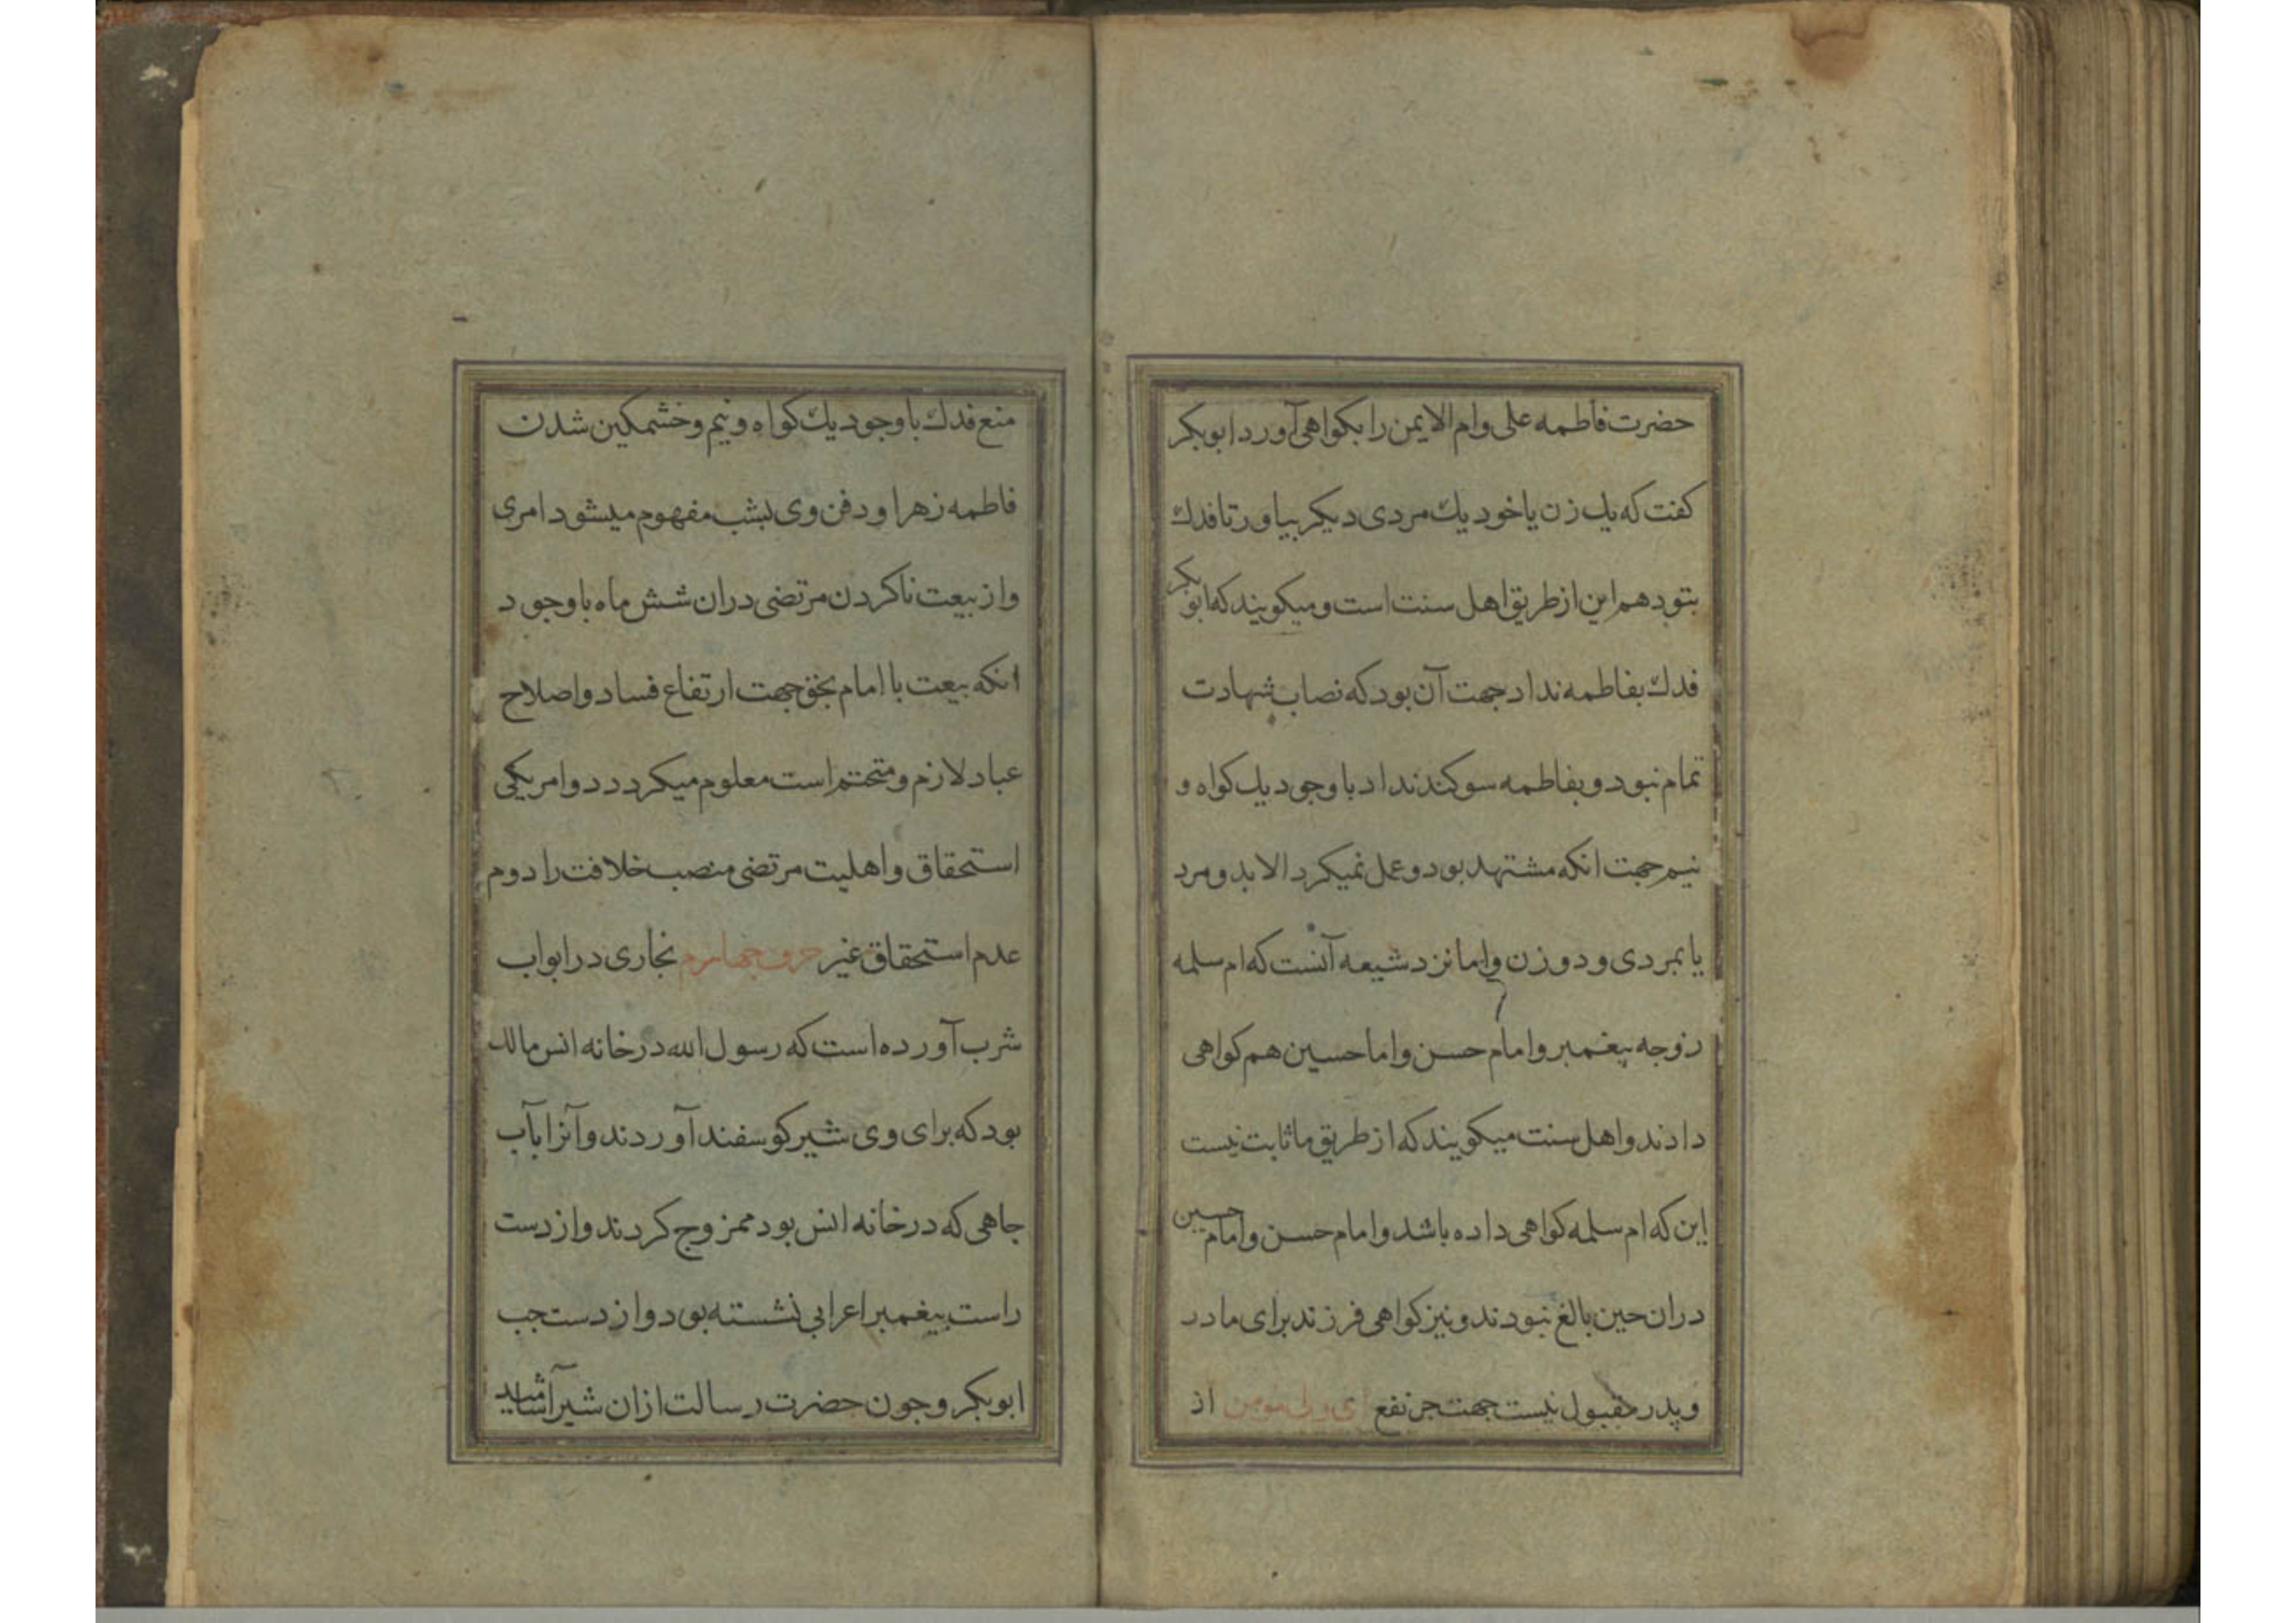 حضرت فاطمه علی وام الایمن را بکواهی آورد ابوبکر
کفت که یك زن یا خود یك مردی دیکر بیاور تا فدك
بتو دهم این از طریق اهل سنت است و میکویند که ابوبکر
فدك بفاطمه نداد جهت آن بود که نصاب شهادت
تمام نبود و بفاطمه سوکند نداد با وجود یك کواه و
نیم جهت انکه مشتهد بود و عمل نمیکرد الا بدو مرد
یا بمردی و دو زن و اما نزد شیعه آنست که ام سلمه
زوجه پیغمبر و امام حسن و اما حسین هم کواهی
دادند و اهل سنت میکویند که از طریق ما ثابت نیست
این که ام سلمه کواهی داده باشد و امام حسن و امام حسین
دران حین بالغ نبودند و نیز کواهی فرزند برای مادر
و پدر مقبول نیست جهت جر نفع ای ولی مومن از
منع فدك با وجود یك کواه و نیم و خشمکین شدن
فاطمه زهرا و دفن وی بشب مفهوم میشود امری
و از بیعت ناکردن مرتضی دران شش ماه با وجود
انکه بیعت با امام بحق جهت ارتفاع فساد و اصلاح
عباد لازم و متحتم است معلوم میکردد دو امر یکی
استحقاق و اهلیت مرتضی منصب خلافت را دوم
عدم استحقاق غیر حرف چهارم بخاری در ابواب
شرب آورده است که رسول الله در خانه انس مالك
بود که برای وی شیر کوسفند آوردند و آنرا بآب
جاهی که در خانه انس بود ممزوج کردند و از دست
راست پیغمبر اعرابی نشسته بود و از دست جب
ابوبکر و جون حضرت رسالت ازان شیر آشامید